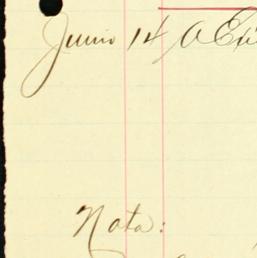 Junio 14 A Ex
Nota: